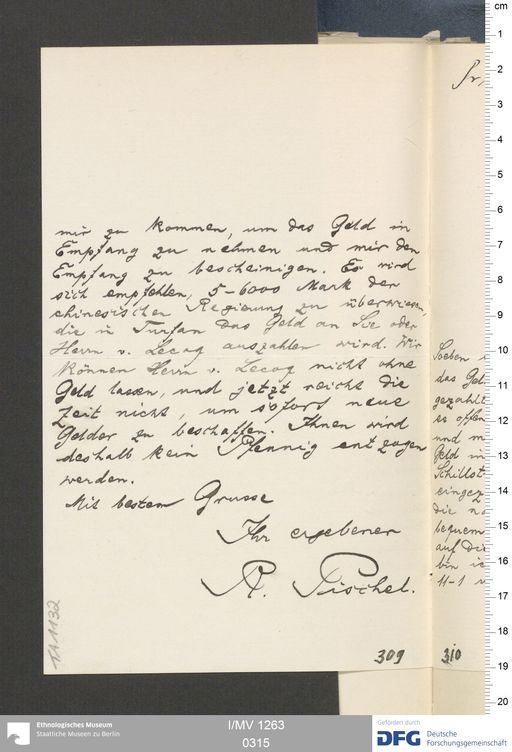 mir zu kommen, um das Geld in
Empfang zu nehmen und mir den
Empfang zu bescheinigen. Es wird
sich empfehlen, 5-6000 Mark der
chinesischen Regierung zu überweisen,
die in Turfan das Geld an Sie oder
Herrn v. Lecoq auszahlen wird. Wir
können Herrn v. Lecoq nicht ohne
Geld lassen, und jetzt reicht die
Zeit nicht, um sofort neue
Gelder zu beschaffen. Ihnen wird
deshalb kein Pfennig entzogen
werden.
Mit bestem Grusse
Ihr ergebener
R. Pischel.
309
TA 1132
Soeben
das Gel
gezahlt
so offen
und m
Geld in
Schillst
eingez
die na
bequem
auf die
bin ic
11-1
310
cm
1
2
3
4
5
6
7
8
9
10
11
12
13
14
15
16
17
18
19
20
Ethnologisches Museum
Staatliche Museen zu Berlin
I/MV 1263
0315
Gefördert durch
DFG Deutsche
Forschungsgemeinschaft